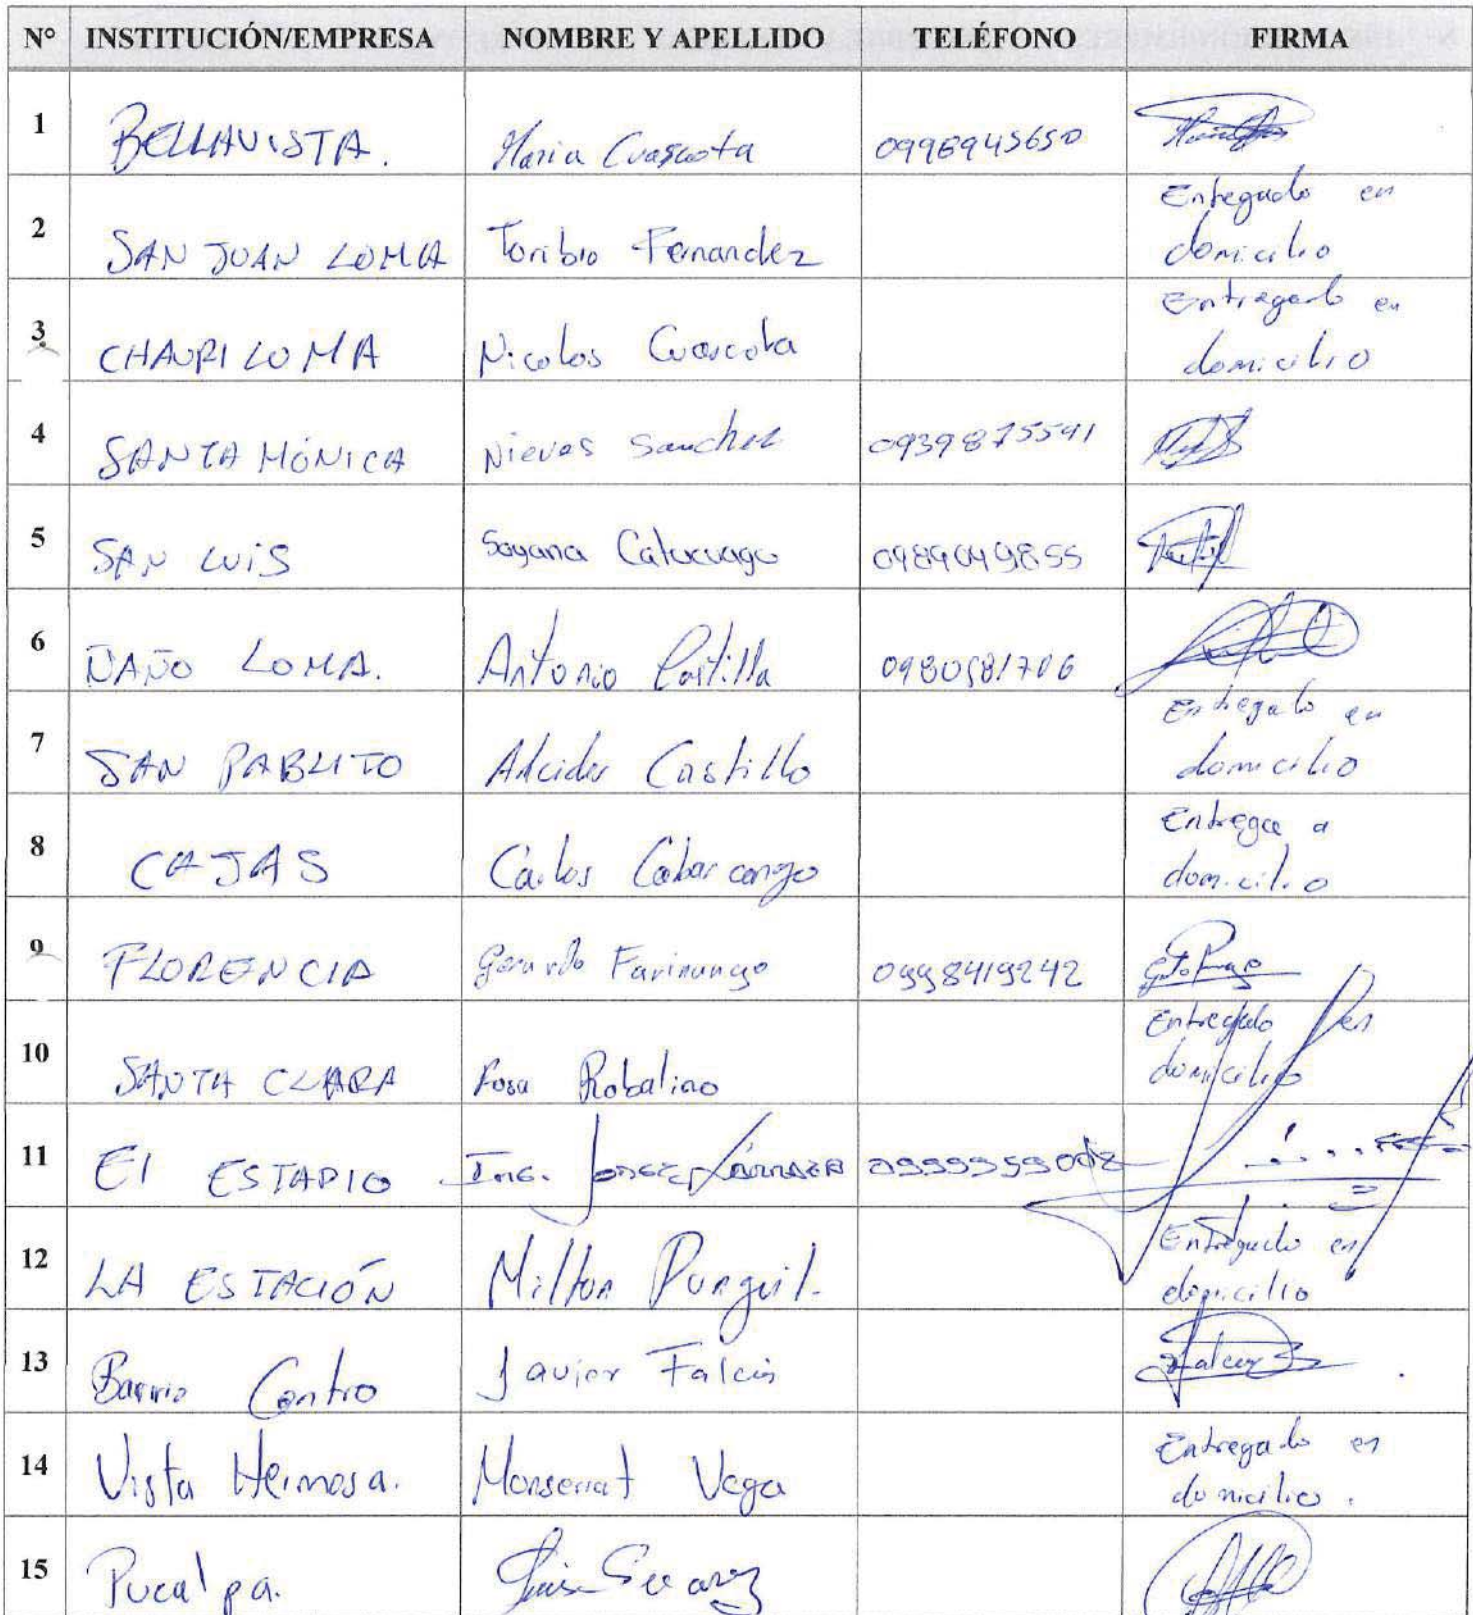 N° INSTITUCIÓN/EMPRESA NOMBRE Y APELLIDO TELÉFONO FIRMA
1 BELLAVISTA. Maria Cuascota 0998945650
2 SAN JUAN LOMA Toribio Fernandez Entregado en
domicilio
3 CHAUPI LOMA Nicolas Cuascota Entregado en
domicilio
4 SANTA MÓNICA Nieves Sanchez 0939875541
5 SAN LUIS Sayana Catucuago 0989049855
6 ÑAÑO LOMA. Antonio Castilla
7 SAN PABLITO Alcides Castillo Entregado en
domicilio
8 CAJAS Carlos Cabascango Entrega a
domicilio
9 FLORENCIA Gerardo Farinango 0998419242
10 SANTA CLARA Rosa Robalino Entregado en
domicilio
11 El ESTADIO ING. Jorge
12 LA ESTACIÓN Milton Entregado en
domicilio
13 Barrio Centro Javier Falcón
14 Vista Hermosa. Monserrat Vega Entregado en
domicilio.
15 Pucalpa.